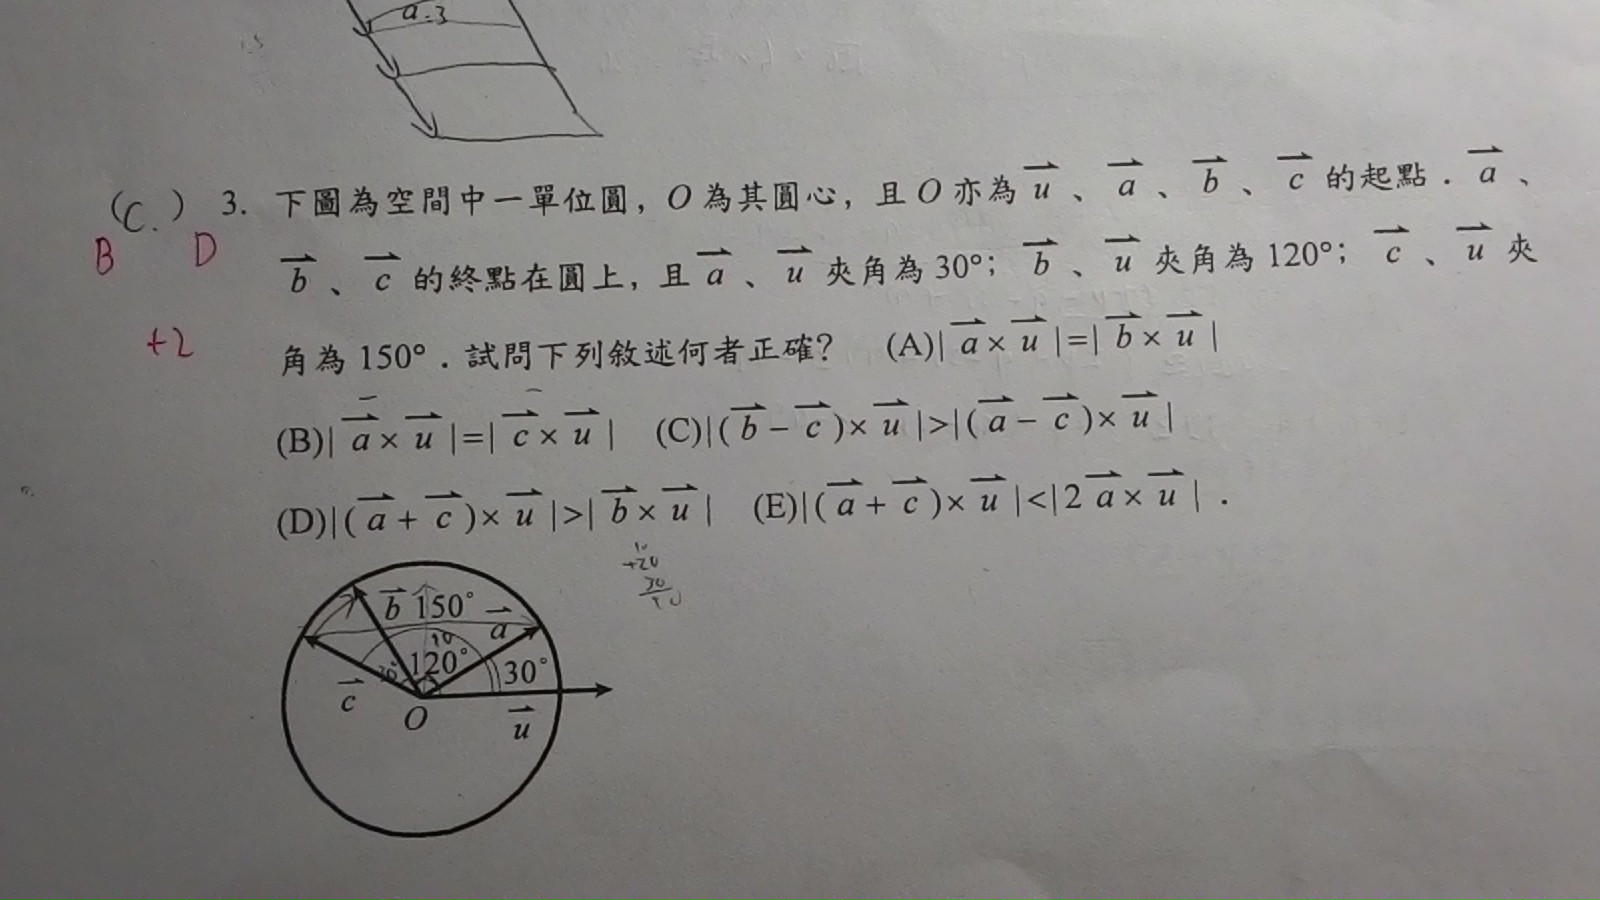 a.3
(C.) 3. 下圖為空間中一單位圓，O 為其圓心，且 O 亦為 u⃗、a⃗、b⃗、c⃗ 的起點．a⃗、
B D b⃗、c⃗ 的終點在圓上，且 a⃗、u⃗ 夾角為 30°；b⃗、u⃗ 夾角為 120°；c⃗、u⃗ 夾
+2 角為 150°．試問下列敘述何者正確？ (A)| a⃗ × u⃗ |=| b⃗ × u⃗ |
(B)| a⃗ × u⃗ |=| c⃗ × u⃗ | (C)|( b⃗ − c⃗ )× u⃗ |>|( a⃗ − c⃗ )× u⃗ |
(D)|( a⃗ + c⃗ )× u⃗ |>| b⃗ × u⃗ | (E)|( a⃗ + c⃗ )× u⃗ |<|2 a⃗ × u⃗ |．
+20
30
b⃗ 150° a⃗
120° 30°
c⃗ O u⃗